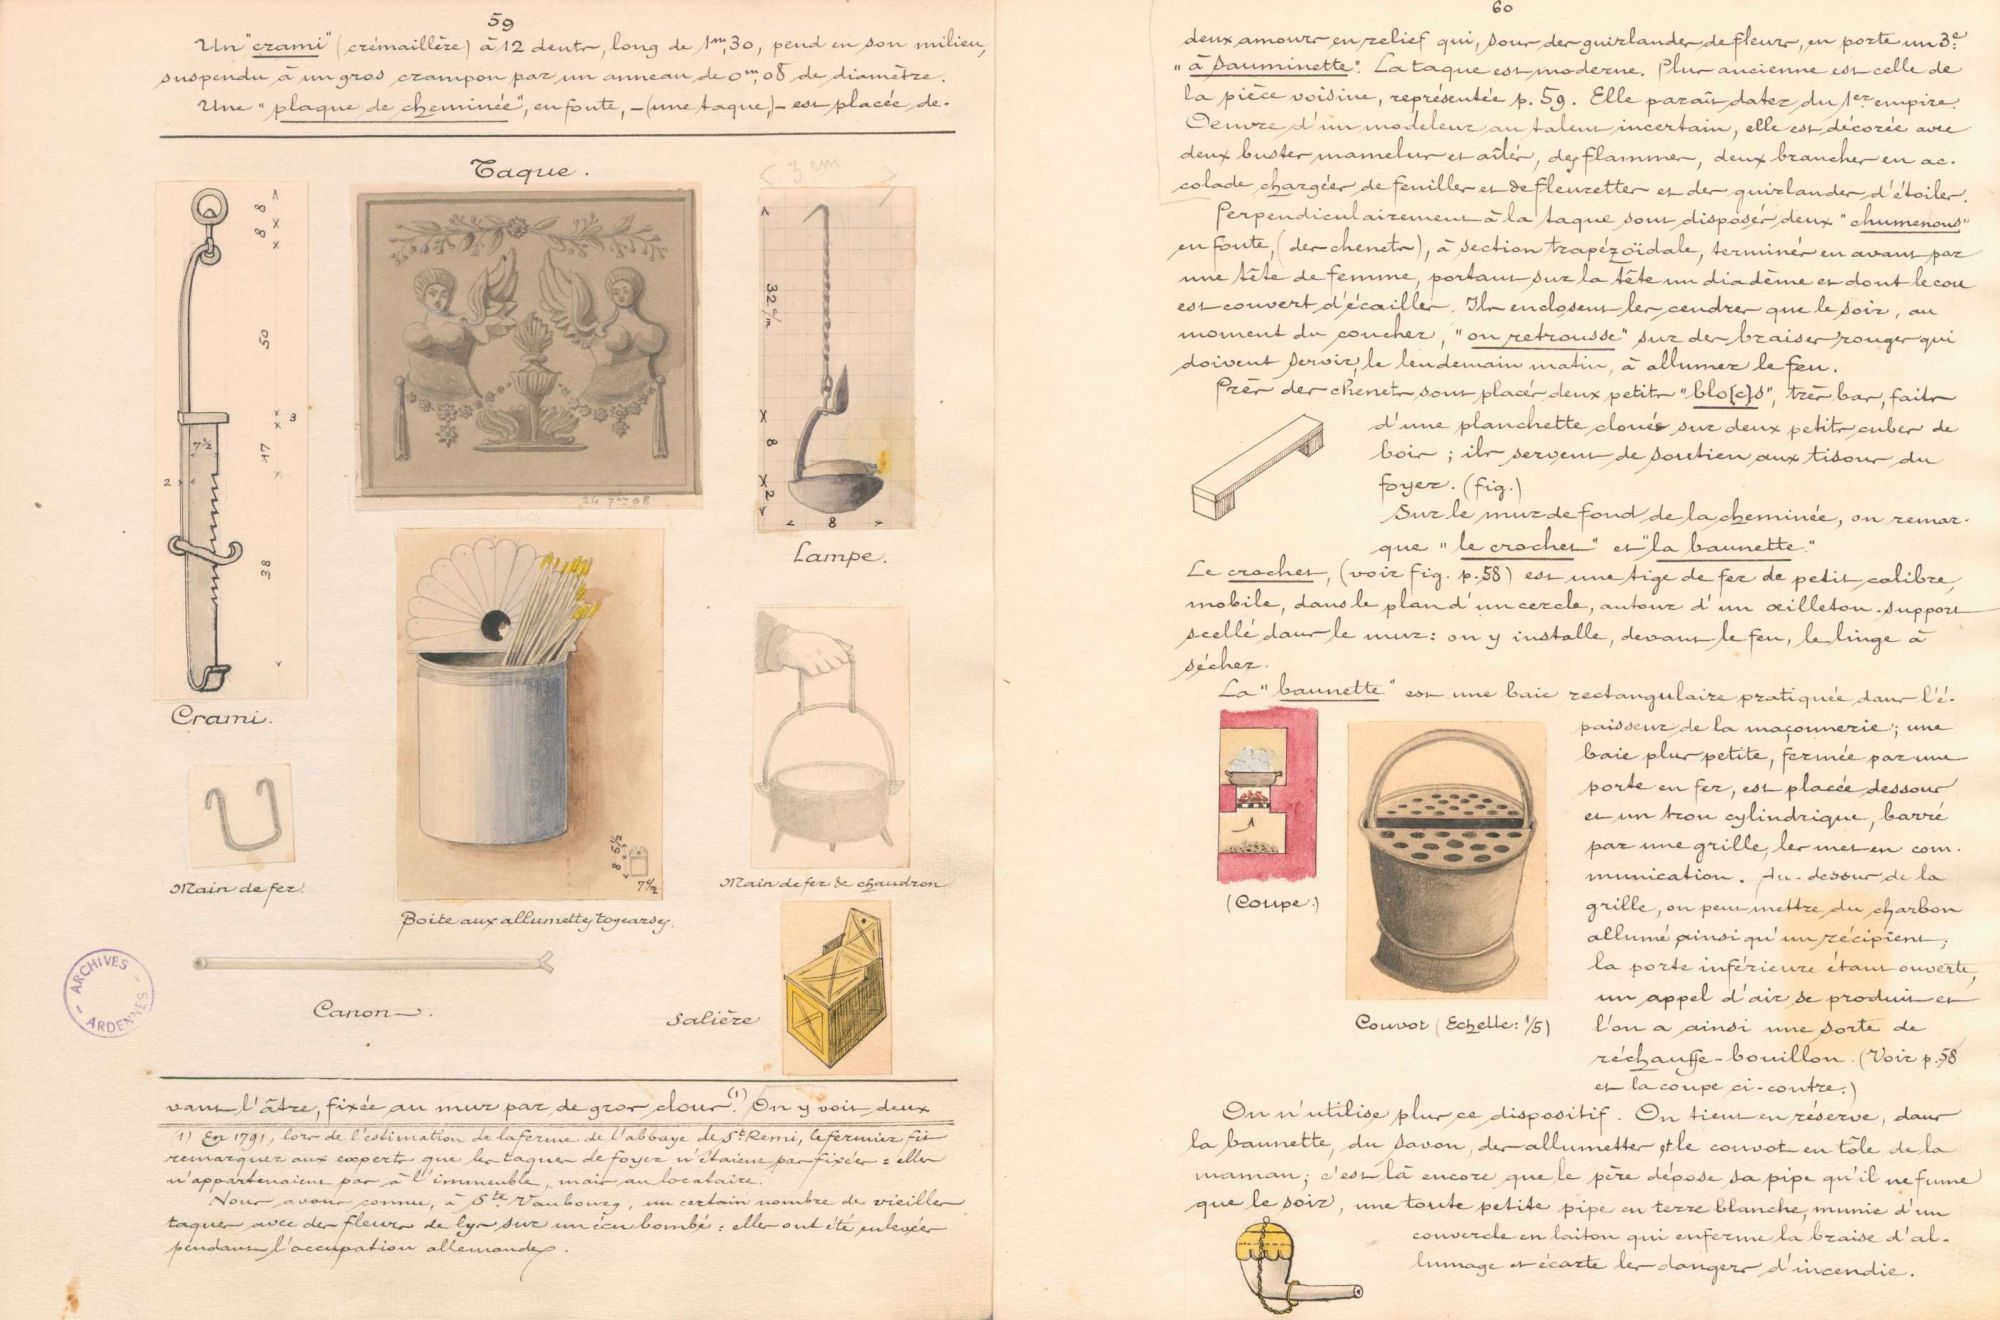 59
Un "crami" (crémaillère) à 12 dents, long de 1m,30, pend en son milieu,
suspendu à un gros crampon par un anneau de 0m,08 de diamètre.
Une "plaque de cheminée", en fonte, – (une taque) – est placée de-
Taque.
3 cm
8
8
50
3
7½
17
2
38
32 c/m
8
2
8
24 7bre 08
Crami.
Lampe.
Main de fer.
8 5½
7 c/m
Boite aux allumettes togeardes.
Main de fer de chaudron
Canon.
Salière
ARCHIVES
ARDENNES
vant l'âtre, fixée au mur par de gros clous.(1) On y voit deux
(1) En 1791, lors de l'estimation de la ferme de l'abbaye de St. Remi, le fermier fit
remarquer aux experts que les taques de foyer n'étaient pas fixées : elles
n'appartenaient pas à l'immeuble, mais au locataire.
Nous avons connu, à Ste. Vaubourg, un certain nombre de vieilles
taques avec des fleurs de lys sur un écu bombé : elles ont été enlevées
pendant l'occupation allemande.
60
deux amours en relief qui, sous des guirlandes de fleurs, en porte un 3e
"à sauminette". La taque est moderne. Plus ancienne est celle de
la pièce voisine, représentée p. 59. Elle parait dater du 1er empire.
Oeuvre d'un modeleur au talent incertain, elle est décorée avec
deux bustes mamelus et aîlés, des flammes, deux branches en ac-
colade chargées de feuilles et de fleurettes et des guirlandes d'étoiles.
Perpendiculairement à la taque sont disposés deux "chumenous"
en fonte, (des chenets), à section trapézoïdale, terminés en avant par
une tête de femme, portant sur la tête un diadème et dont le cou
est couvert d'écailles. Ils enclosent les cendres que le soir, au
moment du coucher, "on retrousse" sur des braises rouges qui
doivent servir, le lendemain matin, à allumer le feu.
Près des chenets sont placés deux petits "blo[c]s", très bas, faits
d'une planchette clouée sur deux petits cubes de
bois ; ils servent de soutien aux tisons du
foyer. (fig.)
Sur le mur de fond de la cheminée, on remar-
que "le crochet" et "la baunette."
Le crochet, (voir fig. p. 58) est une tige de fer de petit calibre,
mobile, dans le plan d'un cercle, autour d'un œilleton-support
scellé dans le mur : on y installe, devant le feu, le linge à
sécher.
La "baunette" est une baie rectangulaire pratiquée dans l'é-
paisseur de la maçonnerie ; une
baie plus petite, fermée par une
porte en fer, est placée dessous
et un trou cylindrique, barré
par une grille, les met en com-
munication. Au-dessus de la
grille, on peut mettre du charbon
allumé ainsi qu'un récipient ;
la porte inférieure étant ouverte,
un appel d'air se produit et
l'on a ainsi une sorte de
réchauffe-bouillon. (Voir p. 58
et la coupe ci-contre.)
(Coupe.)
Couvot (Echelle : 1/5)
On n'utilise plus ce dispositif. On tient en réserve, dans
la baunette, du savon, des allumettes et le couvot en tôle de la
maman ; c'est là encore que le père dépose sa pipe qu'il ne fume
que le soir, une toute petite pipe en terre blanche, munie d'un
couvercle en laiton qui enferme la braise d'al-
lumage et écarte les dangers d'incendie.